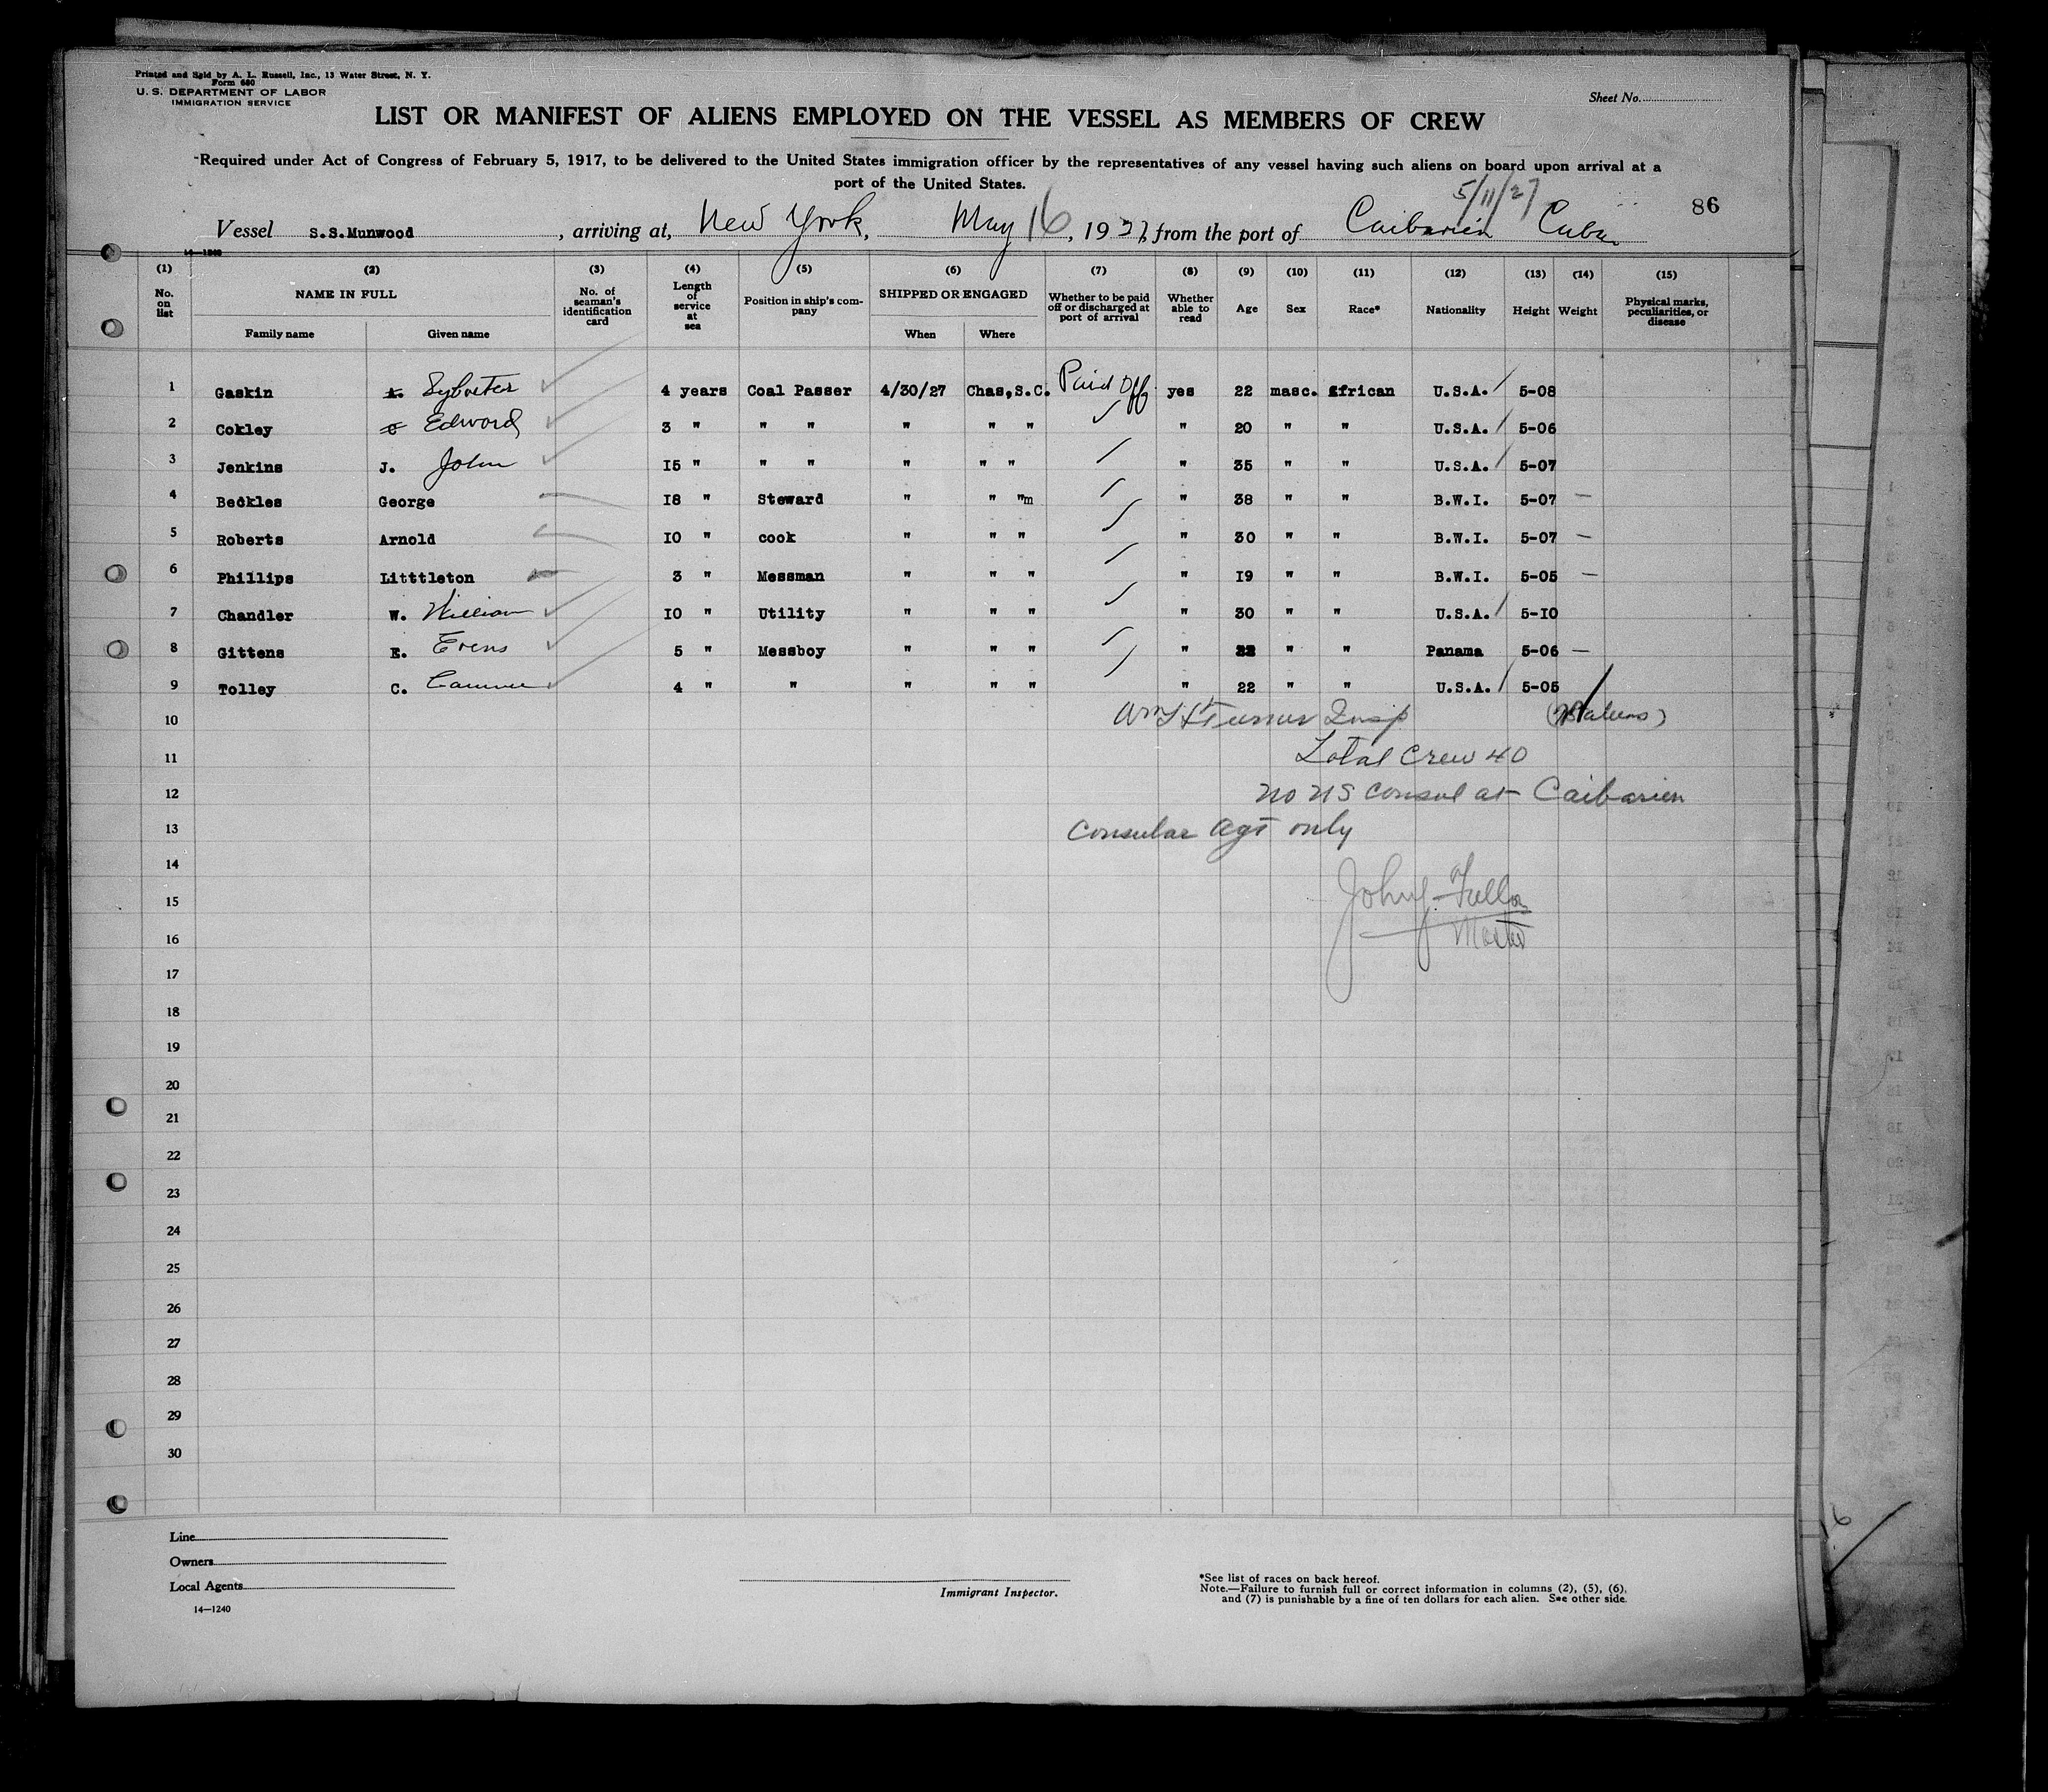 Printed and Sold by A. L. Russell, Inc., 13 Water Street, N. Y.
Form 680
U. S. DEPARTMENT OF LABOR
IMMIGRATION SERVICE
Sheet No.
LIST OR MANIFEST OF ALIENS EMPLOYED ON THE VESSEL AS MEMBERS OF CREW
Required under Act of Congress of February 5, 1917, to be delivered to the United States immigration officer by the representatives of any vessel having such aliens on board upon arrival at a
port of the United States.
5/11/27
86
Vessel S.S.Munwood, arriving at, New York, May 16, 1927, from the port of Caibarien Cuba
14—1240
(1) (2) (3) (4) (5) (6) (7) (8) (9) (10) (11) (12) (13) (14) (15)
No. on list NAME IN FULL No. of seaman's identification card Length of service at sea Position in ship's company SHIPPED OR ENGAGED Whether to be paid off or discharged at port of arrival Whether able to read Age Sex Race* Nationality Height Weight Physical marks, peculiarities, or disease
Family name Given name When Where
1 Gaskin Sylvester 4 years Coal Passer 4/30/27 Chas,S.C. Paid Off yes 22 masc. african U.S.A. 5-08
2 Cokley Edward 3 " " " " " " " 20 " " U.S.A. 5-06
3 Jenkins J. John 15 " " " " " " " 35 " " U.S.A. 5-07
4 Beckles George 18 " Steward " " "m " 38 " " B.W.I. 5-07 —
5 Roberts Arnold 10 " cook " " " " 30 " " B.W.I. 5-07 —
6 Phillips Litttleton 3 " Messman " " " " 19 " " B.W.I. 5-05 —
7 Chandler W. William 10 " Utility " " " " 30 " " U.S.A. 5-10
8 Gittens E. Evens 5 " Messboy " " " " 22 " " Panama 5-06 —
9 Tolley C. 4 " " " " " " 22 " " U.S.A. 5-05
10 Turner Insp
11 Total Crew 40
12 no US consul at Caibarien
13 Consular Agt only
14
15 John Fuller
16 Master
17
18
19
20
21
22
23
24
25
26
27
28
29
30
Line
Owners
Local Agents
14—1240
Immigrant Inspector.
*See list of races on back hereof.
Note.—Failure to furnish full or correct information in columns (2), (5), (6),
and (7) is punishable by a fine of ten dollars for each alien. See other side.
16